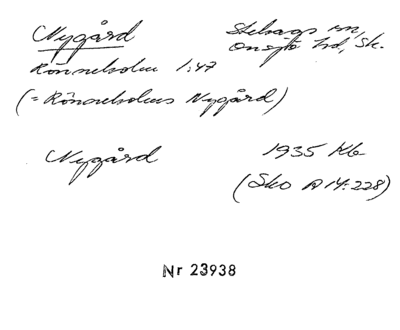 Nygård
Stehags sn,
Onsjö hd, Sk.
Rönneholm 1:47
(= Rönneholms Nygård)
Nygård
1935 Kb
(Sko A 14:228)
Nr 23938